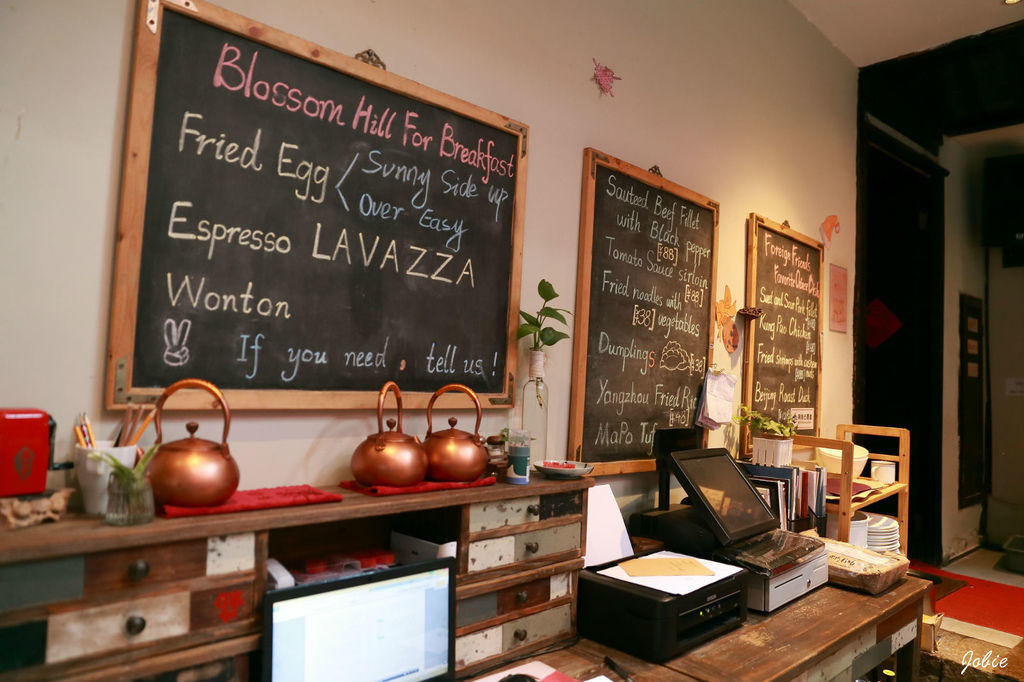 Blossom Hill For Breakfast
Fried Egg
Sunny Side up
Over Easy
Espresso LAVAZZA
Wonton
If you need, tell us!
Sauteed Beef Fillet
with Black pepper
[¥88]
Tomato Sauce sirloin
[¥88]
Fried noodles with
[¥38] vegetables
Dumplings
Yangzhou Fried Ric
MaPo Tof
Foreign Friends
Favorite
Sweet and Sour Pork fillet
Kung Pao Chicken
Fried Shrimps with cashew
nuts
Beijing Roast Duck
Jobie